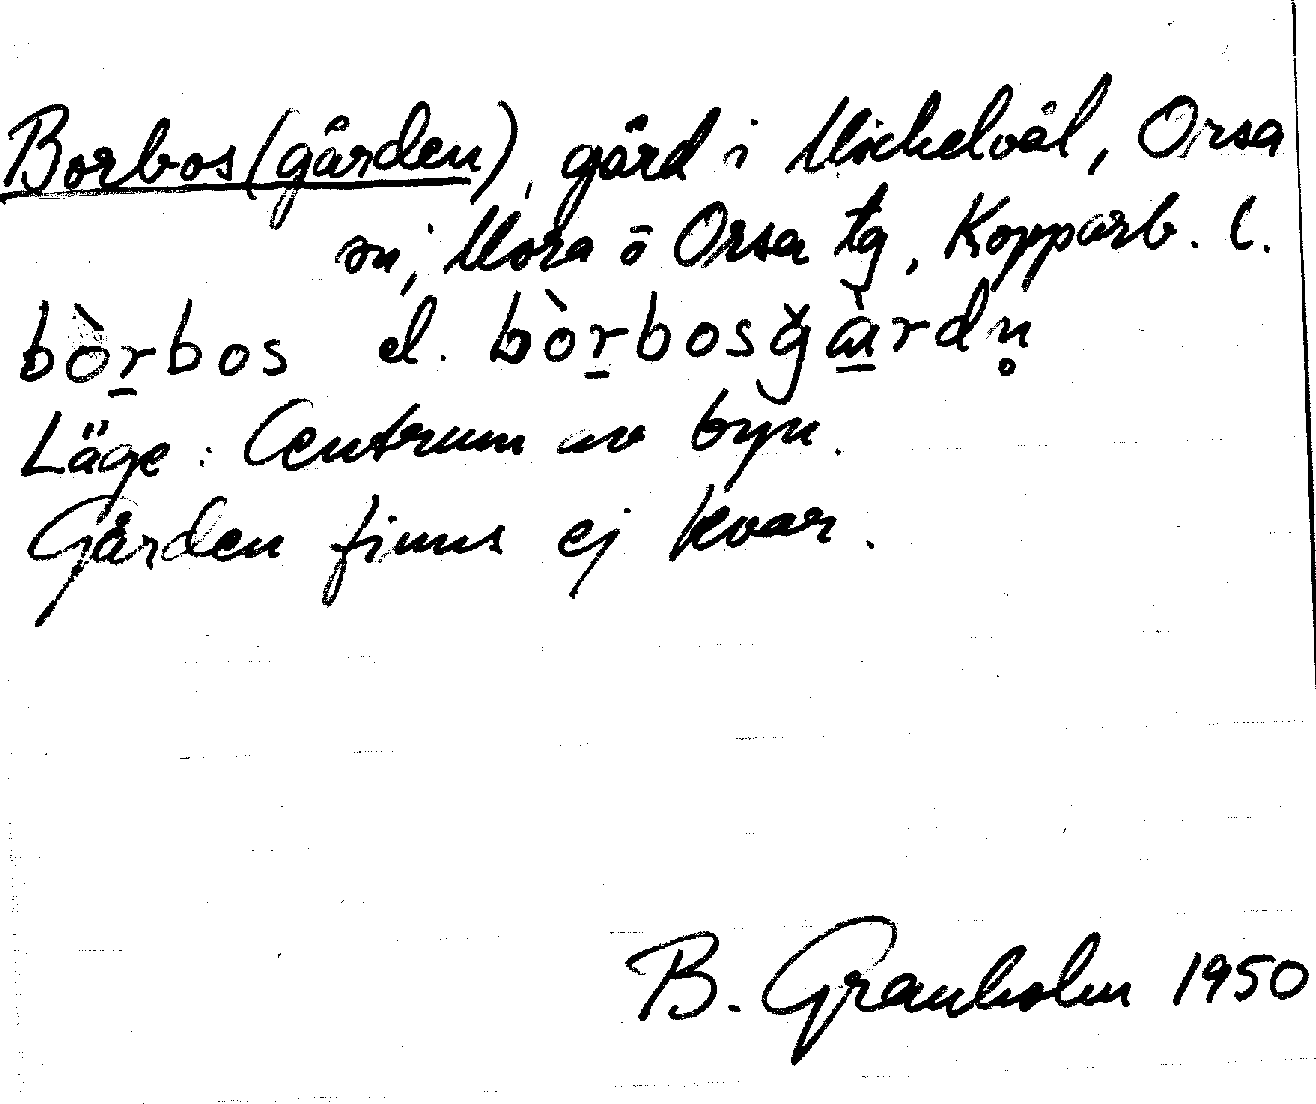 Borbos(gården), gård i Mickelvål, Orsa
sn, Mora o Orsa tg, Kopparb. l.
bòr̠bos el. bòr̠bosğà̠rdn̥
Läge: Centrum av byn.
Gården finns ej kvar.
B. Granholm 1950